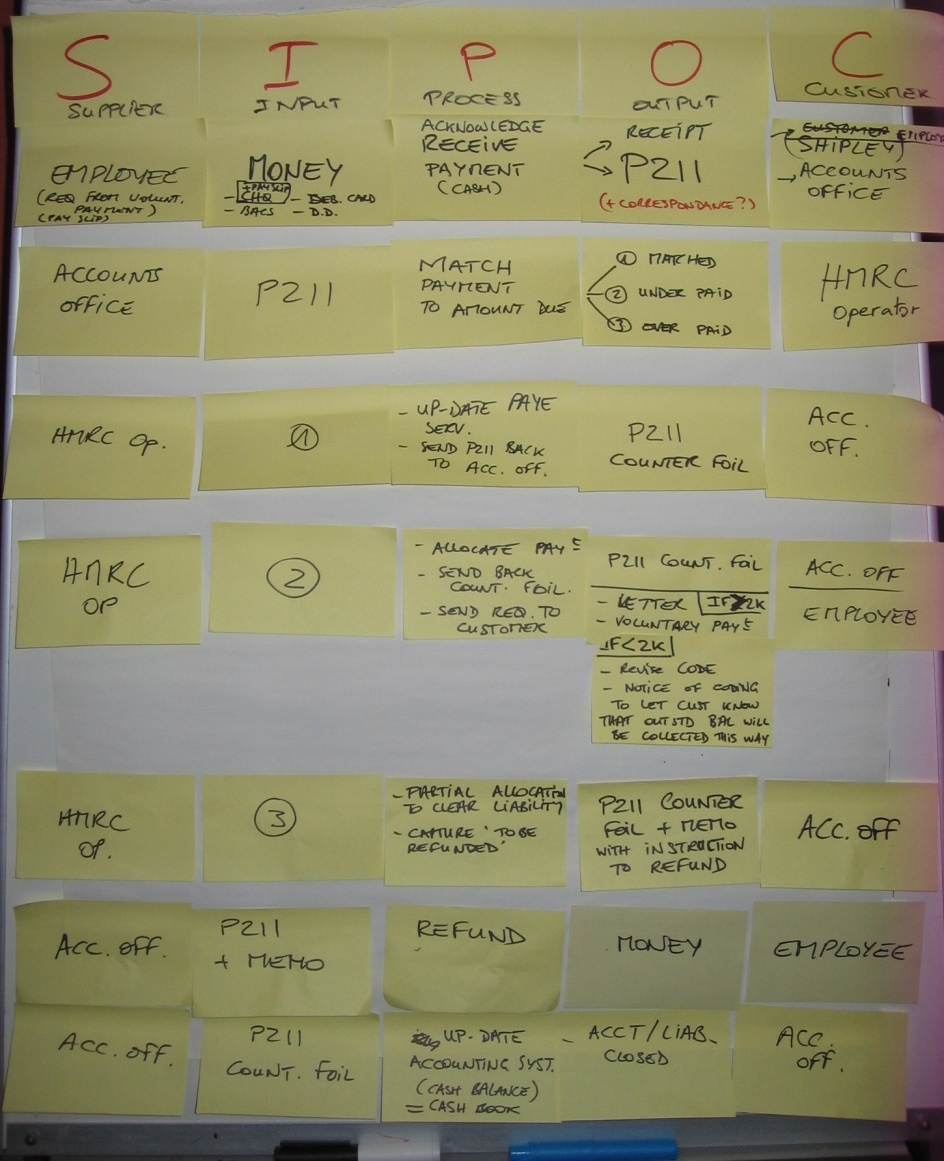 S
SUPPLIER
I
INPUT
P
PROCESS
O
OUTPUT
C
CUSTOMER
EMPLOYEE
(REQ FROM VOLUNT.
PAYMENT)
(PAY SLIP)
MONEY
+PAYSLIP
- CHQ - DEB. CARD
- BACS - D.D.
ACKNOWLEDGE
RECEIVE
PAYMENT
(CASH)
RECEIPT
P211
(+ CORRESPONDANCE?)
CUSTOMER EMPLOY
(SHIPLEY)
ACCOUNTS
OFFICE
ACCOUNTS
OFFICE
P211
MATCH
PAYMENT
TO AMOUNT DUE
① MATCHED
② UNDER PAID
③ OVER PAID
HMRC
operator
HMRC Op.
①
- UP-DATE PAYE
SERV.
- SEND P211 BACK
TO ACC. OFF.
P211
COUNTER FOIL
ACC.
OFF.
HMRC
OP
②
- ALLOCATE PAYᵗ
- SEND BACK
COUNT. FOIL.
- SEND REQ. TO
CUSTOMER
P211 COUNT. FOIL
- LETTER IF>2K
- VOLUNTARY PAYᵗ
IF<2K
- REVISE CODE
- NOTICE OF CODING
TO LET CUST KNOW
THAT OUTSTD BAL WILL
BE COLLECTED THIS WAY
ACC. OFF
EMPLOYEE
HMRC
OP.
③
- PARTIAL ALLOCATION
TO CLEAR LIABILITY
- CAPTURE 'TO BE
REFUNDED'
P211 COUNTER
FOIL + MEMO
WITH INSTRUCTION
TO REFUND
ACC. OFF
ACC. OFF.
P211
+ MEMO
REFUND
MONEY
EMPLOYEE
ACC. OFF.
P211
COUNT. FOIL
UP-DATE
ACCOUNTING SYST.
(CASH BALANCE)
= CASH BOOK
- ACCT/LIAB.
CLOSED
ACC.
OFF.